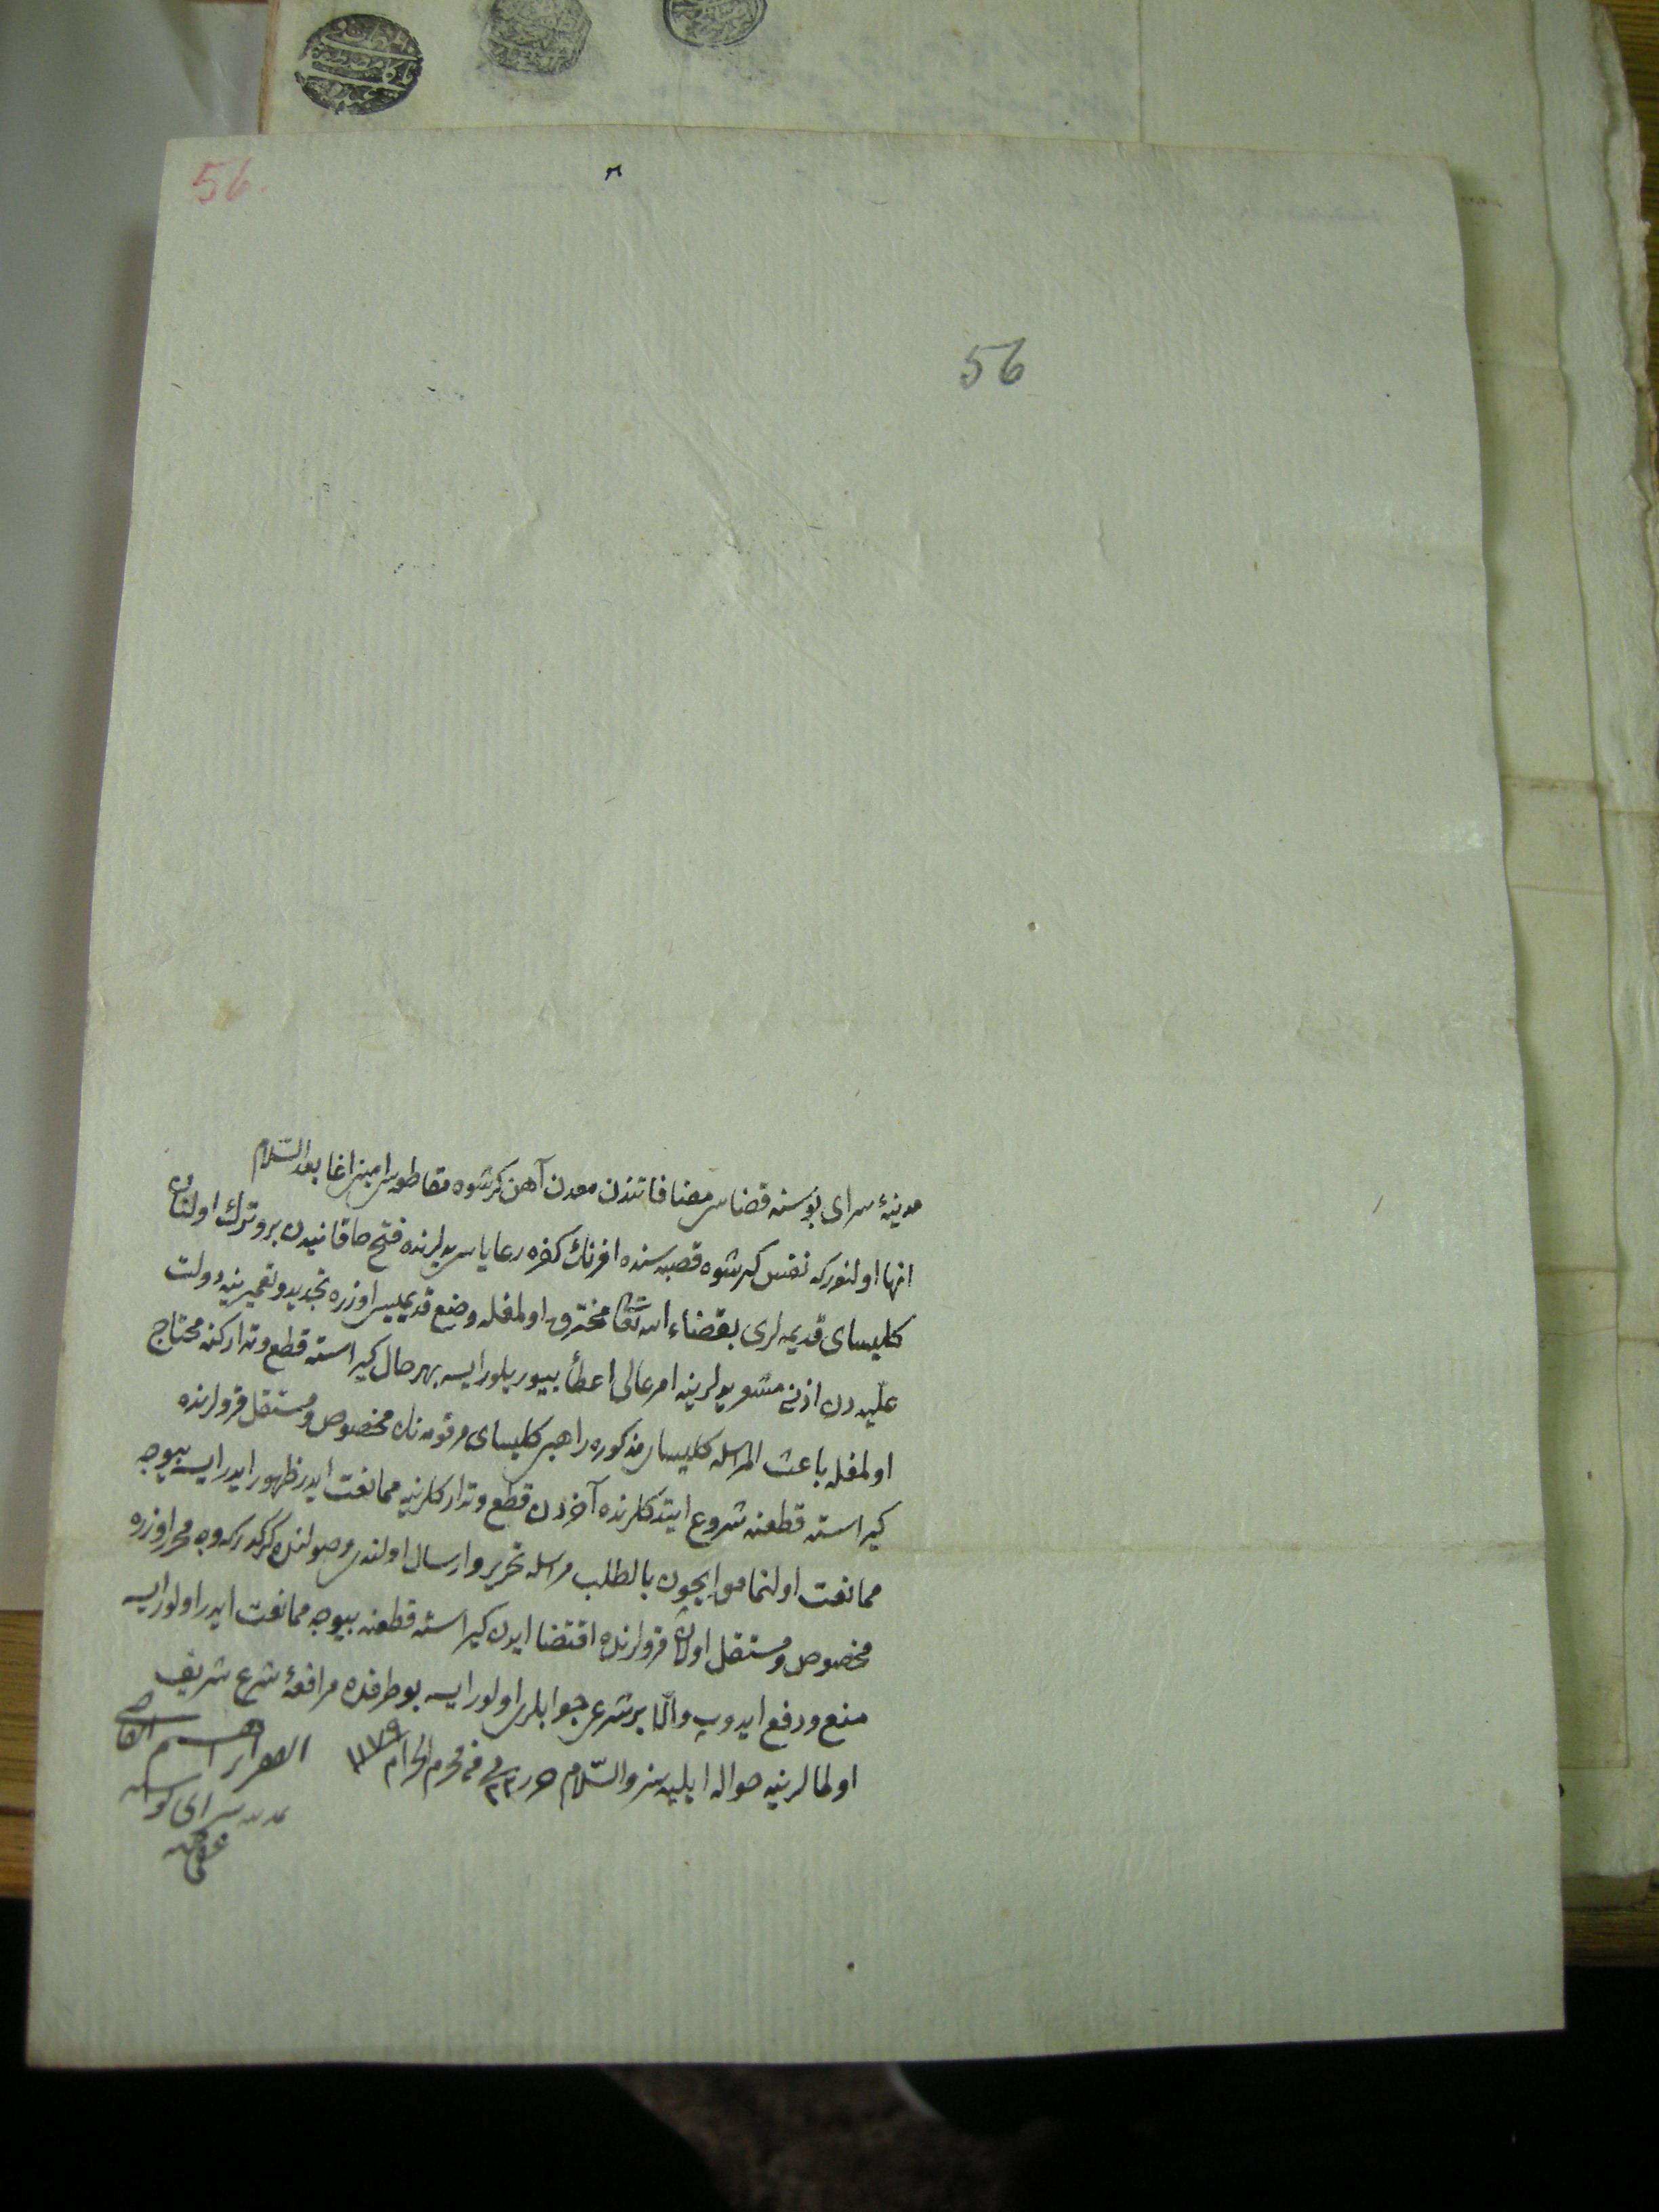 56
56
مدینۀ سرای بوسنه قضاسی مضافاتندن معدن آهن کرشوه مقاطعه‌سی امینی اغا بعد السّلام
انها اولنورکه نفس کرشوه قصبه‌سنده افرنك کفره رعایاسی یدلرنده فتح خاقانیدن برو ترك اولنان
کلیسای قدیمه‌لری بقضاء الله تعالی محترق اولمغله وضع قدیمیسی اوزره تجدید و تعمیرینه دولت
علیه‌دن اذنی مشعر یدلرینه امر عالی اعطأ بیوریلور ایسه بهر حال کیراسته قطع و تدارکنه محتاج
اولمغله باعث المراسله کلیسای مذکوره راهبی کلیسای مرقومه‌نك مخصوص و مستقل قرولرنده
کیراسته قطعنه شروع ایتدکلرنده آخردن قطع و تدارکلرینه ممانعت ایدر ظهور ایدر ایسه بیوجه
ممانعت اولنمامق ایچون بالطلب مراسله تحریر و ارسال اولندی وصولنده کرکدرکه وجه محرر اوزره
مخصوص و مستقل اولان قرولرنده اقتضا ایدن کیراسته قطعنه بیوجه ممانعت ایدر اولور ایسه
منع و دفع ایدوب والّا بر شرعی جوابلری اولور ایسه بو طرفده مرافعۀ شرع شریف
اولمالرینه حواله ایلیه‌سز والسّلام حرر فی ٢٣ فی محرم الحرام ١١٧٩
القاضی
بمدینه سرای بوسنه
عفی عنه